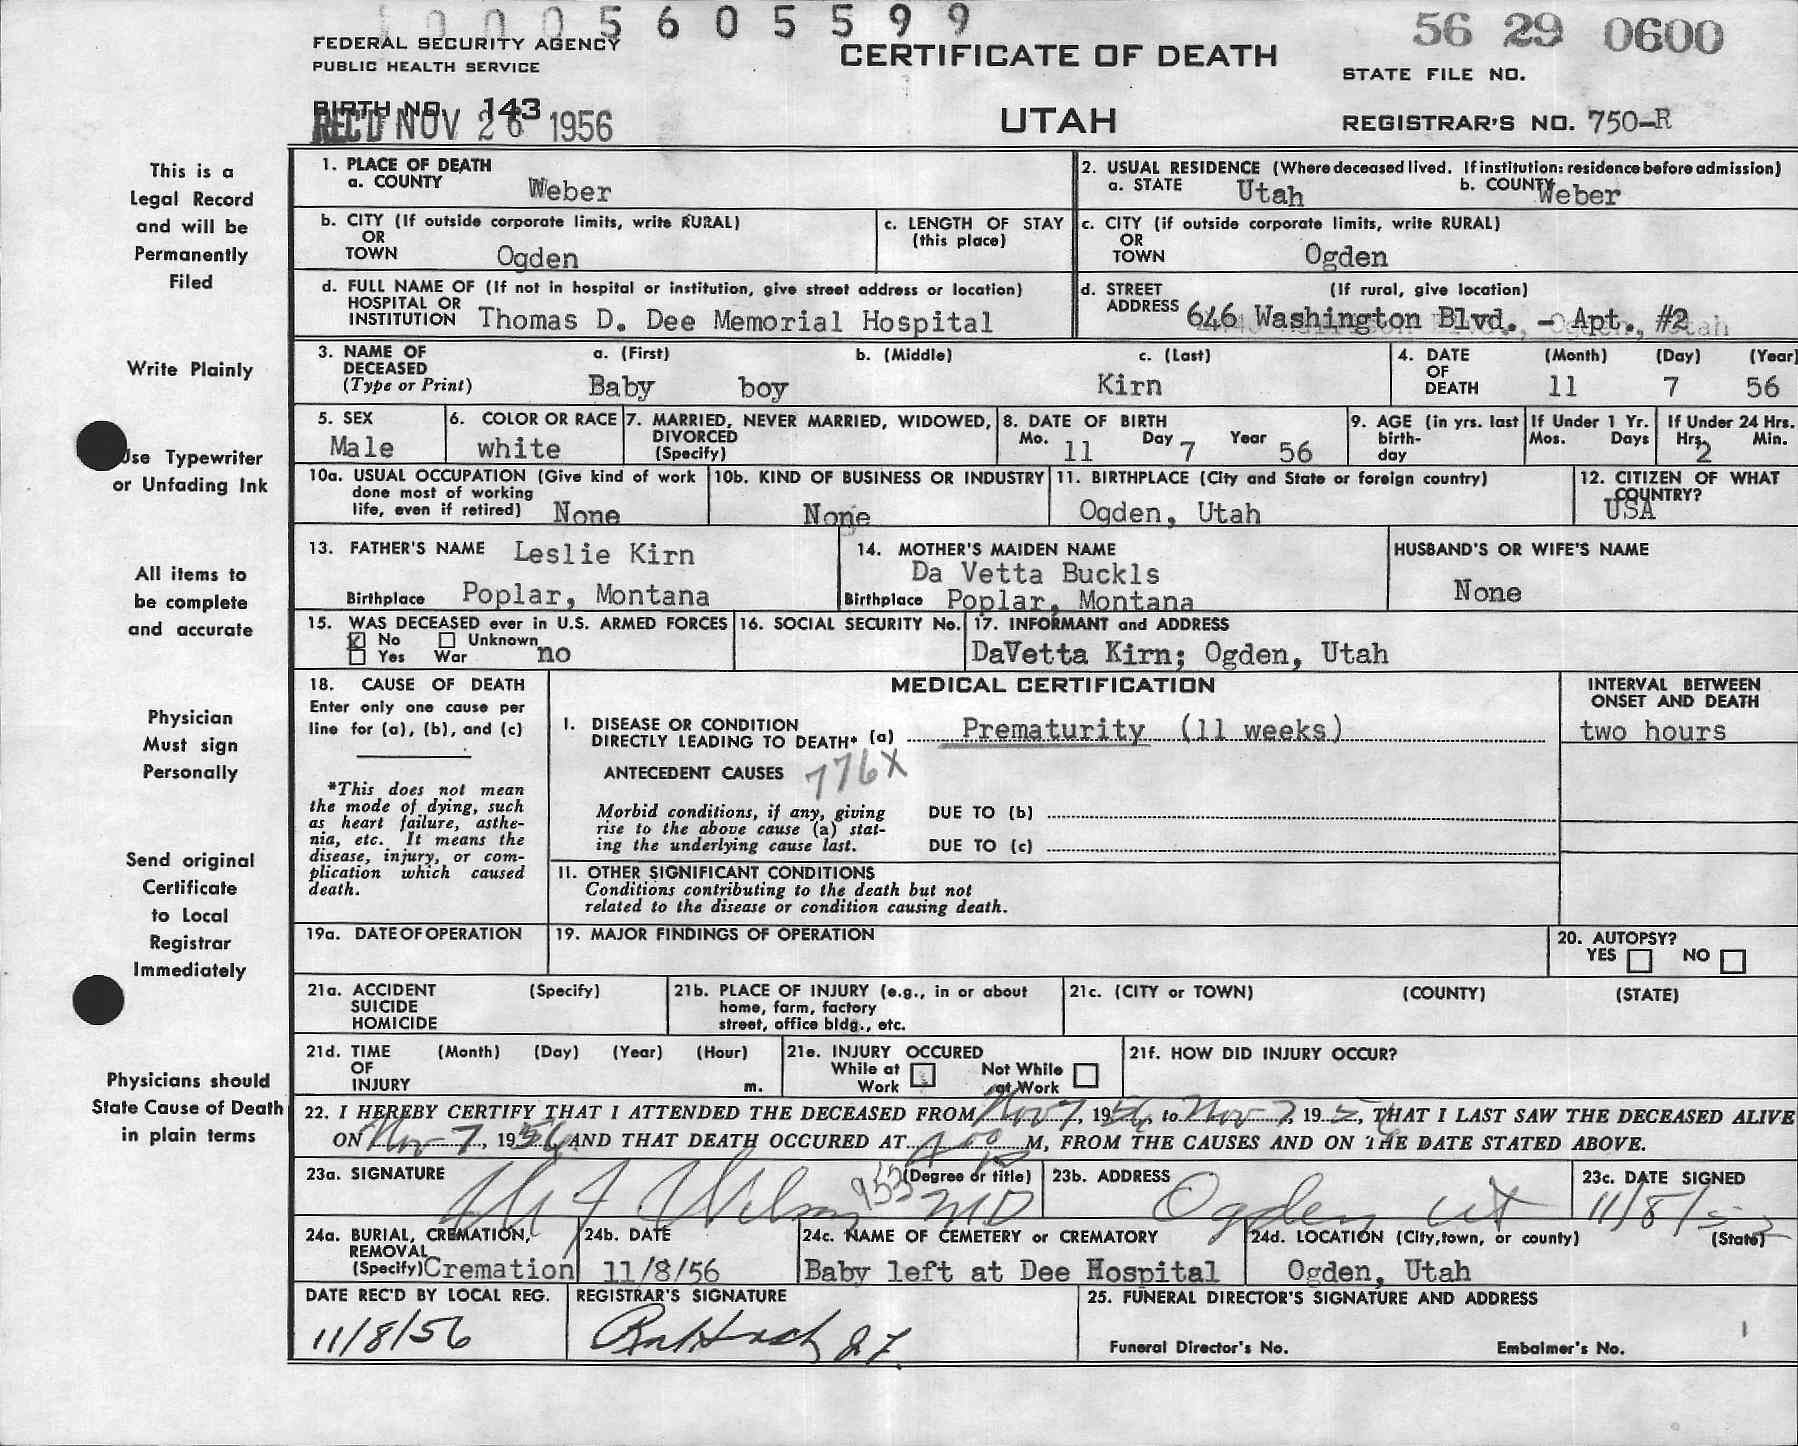 10005605599
56 29 0600
FEDERAL SECURITY AGENCY
PUBLIC HEALTH SERVICE
CERTIFICATE OF DEATH
STATE FILE NO.
BIRTH NO. 143
REC'D NOV 26 1956
UTAH
REGISTRAR'S NO. 750-R
This is a
Legal Record
and will be
Permanently
Filed
Write Plainly
Use Typewriter
or Unfading Ink
All items to
be complete
and accurate
Physician
Must sign
Personally
Send original
Certificate
to Local
Registrar
Immediately
Physicians should
State Cause of Death
in plain terms
1. PLACE OF DEATH
a. COUNTY Weber
2. USUAL RESIDENCE (Where deceased lived. If institution: residence before admission)
a. STATE Utah b. COUNTY Weber
b. CITY (If outside corporate limits, write RURAL)
OR
TOWN Ogden
c. LENGTH OF STAY
(this place)
c. CITY (if outside corporate limits, write RURAL)
OR
TOWN Ogden
d. FULL NAME OF (If not in hospital or institution, give street address or location)
HOSPITAL OR
INSTITUTION Thomas D. Dee Memorial Hospital
d. STREET (If rural, give location)
ADDRESS 646 Washington Blvd. - Apt., #2
3. NAME OF a. (First) b. (Middle) c. (Last)
DECEASED
(Type or Print) Baby boy Kirn
4. DATE (Month) (Day) (Year)
OF
DEATH 11 7 56
5. SEX
Male
6. COLOR OR RACE
white
7. MARRIED, NEVER MARRIED, WIDOWED,
DIVORCED
(Specify)
8. DATE OF BIRTH
Mo. 11 Day 7 Year 56
9. AGE (in yrs. last
birth-
day
If Under 1 Yr.
Mos. Days
If Under 24 Hrs.
Hrs. 2 Min.
10a. USUAL OCCUPATION (Give kind of work
done most of working
life, even if retired) None
10b. KIND OF BUSINESS OR INDUSTRY
None
11. BIRTHPLACE (City and State or foreign country)
Ogden, Utah
12. CITIZEN OF WHAT
COUNTRY?
USA
13. FATHER'S NAME Leslie Kirn
Birthplace Poplar, Montana
14. MOTHER'S MAIDEN NAME
Da Vetta Buckls
Birthplace Poplar, Montana
HUSBAND'S OR WIFE'S NAME
None
15. WAS DECEASED ever in U.S. ARMED FORCES
No Unknown
Yes War no
16. SOCIAL SECURITY No.
17. INFORMANT and ADDRESS
DaVetta Kirn; Ogden, Utah
18. CAUSE OF DEATH
Enter only one cause per
line for (a), (b), and (c)
*This does not mean
the mode of dying, such
as heart failure, asthe-
nia, etc. It means the
disease, injury, or com-
plication which caused
death.
MEDICAL CERTIFICATION
I. DISEASE OR CONDITION
DIRECTLY LEADING TO DEATH* (a) Prematurity (11 weeks)
ANTECEDENT CAUSES 776X
Morbid conditions, if any, giving
rise to the above cause (a) stat-
ing the underlying cause last.
DUE TO (b)
DUE TO (c)
11. OTHER SIGNIFICANT CONDITIONS
Conditions contributing to the death but not
related to the disease or condition causing death.
INTERVAL BETWEEN
ONSET AND DEATH
two hours
19a. DATE OF OPERATION
19. MAJOR FINDINGS OF OPERATION
20. AUTOPSY?
YES NO
21a. ACCIDENT (Specify)
SUICIDE
HOMICIDE
21b. PLACE OF INJURY (e.g., in or about
home, farm, factory
street, office bldg., etc.
21c. (CITY or TOWN) (COUNTY) (STATE)
21d. TIME (Month) (Day) (Year) (Hour)
OF
INJURY m.
21e. INJURY OCCURED
While at Not While
Work at Work
21f. HOW DID INJURY OCCUR?
22. I HEREBY CERTIFY THAT I ATTENDED THE DECEASED FROM Nov 7, 1956, to Nov 7, 195, THAT I LAST SAW THE DECEASED ALIVE
ON Nov 7, 1956, AND THAT DEATH OCCURED AT M, FROM THE CAUSES AND ON THE DATE STATED ABOVE.
23a. SIGNATURE (Degree or title)
953 MD
23b. ADDRESS
Ogden Ut
23c. DATE SIGNED
11/8/
24a. BURIAL, CREMATION,
REMOVAL
(Specify) Cremation
24b. DATE
11/8/56
24c. NAME OF CEMETERY or CREMATORY
Baby left at Dee Hospital
24d. LOCATION (City, town, or county) (State)
Ogden, Utah
DATE REC'D BY LOCAL REG.
11/8/56
REGISTRAR'S SIGNATURE
25. FUNERAL DIRECTOR'S SIGNATURE AND ADDRESS
Funeral Director's No. Embalmer's No.